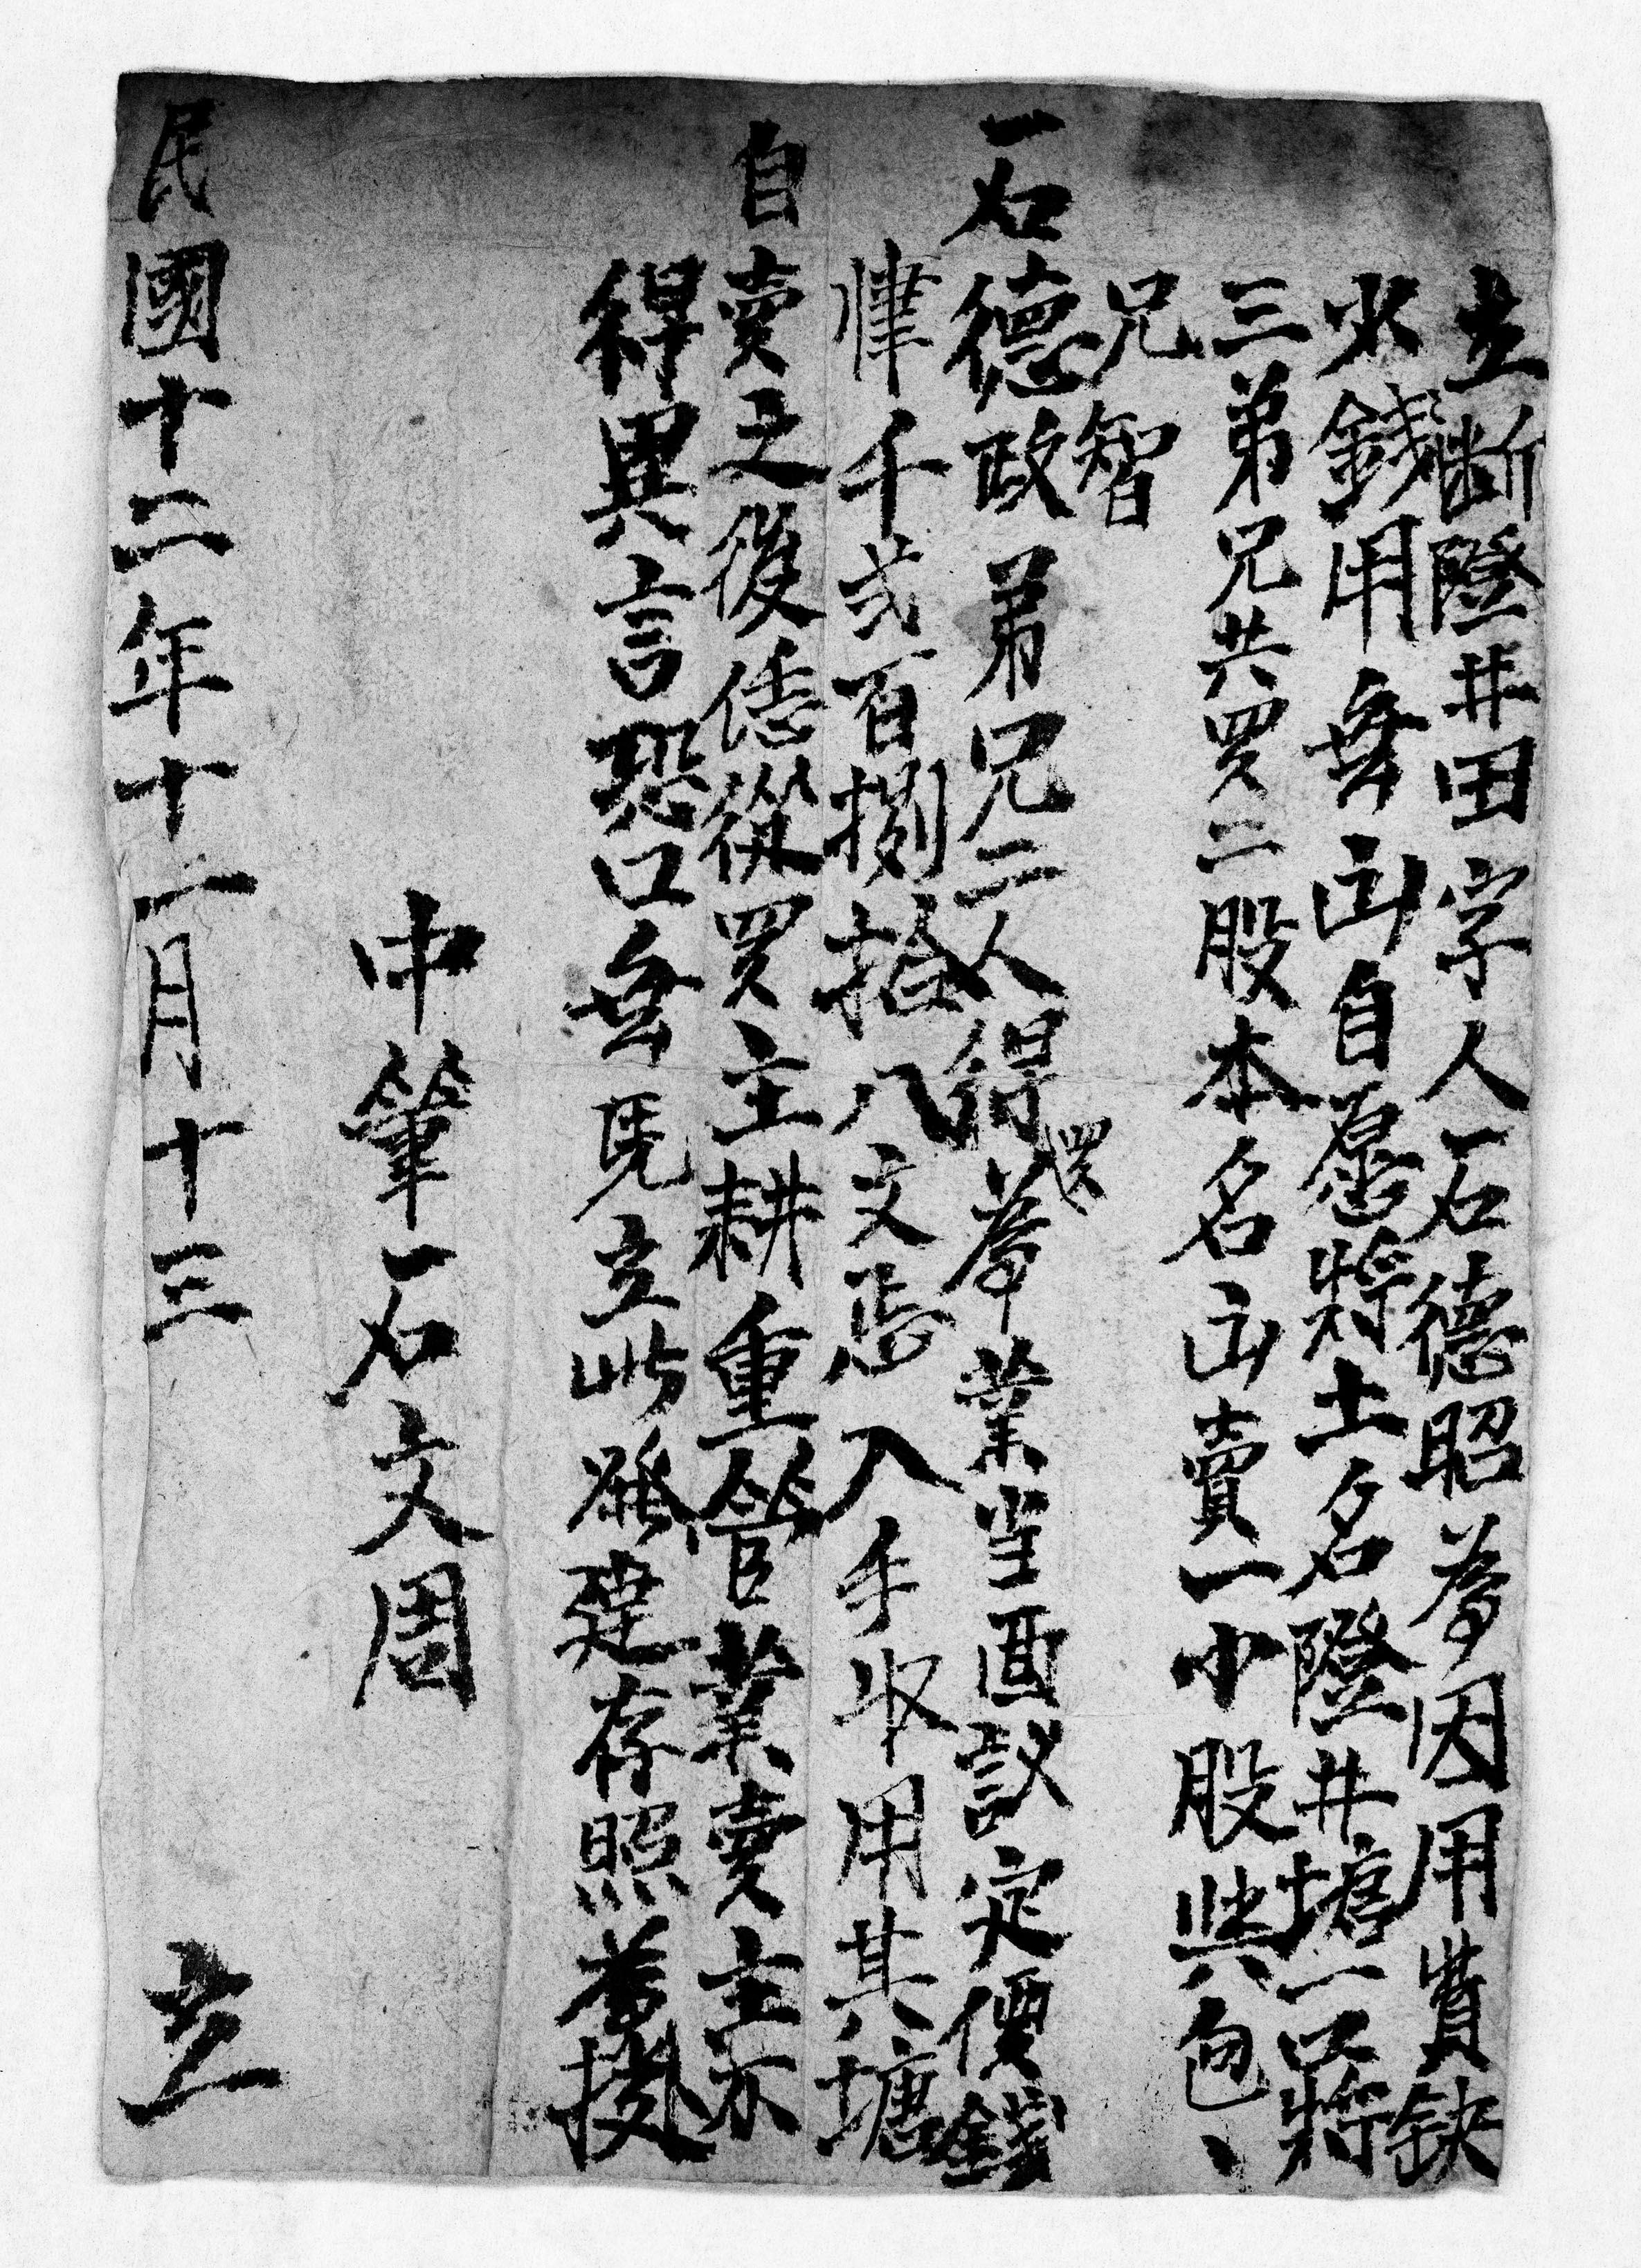 立断隥井田字人石德昭為因用費缺
少錢用無出自愿將土名隥井塘一口將
三弟兄共買二股本名出賣一小股與包、
兄智
石德政弟兄二人得買為業當面議定價錢
肆千弍百捌拾八文焉入手收用其塘
自賣之後恁從買主耕重管業賣主不
得異言恐口無凴立此發達存照為授
中筆石文周
民國十二年十一月十三 立